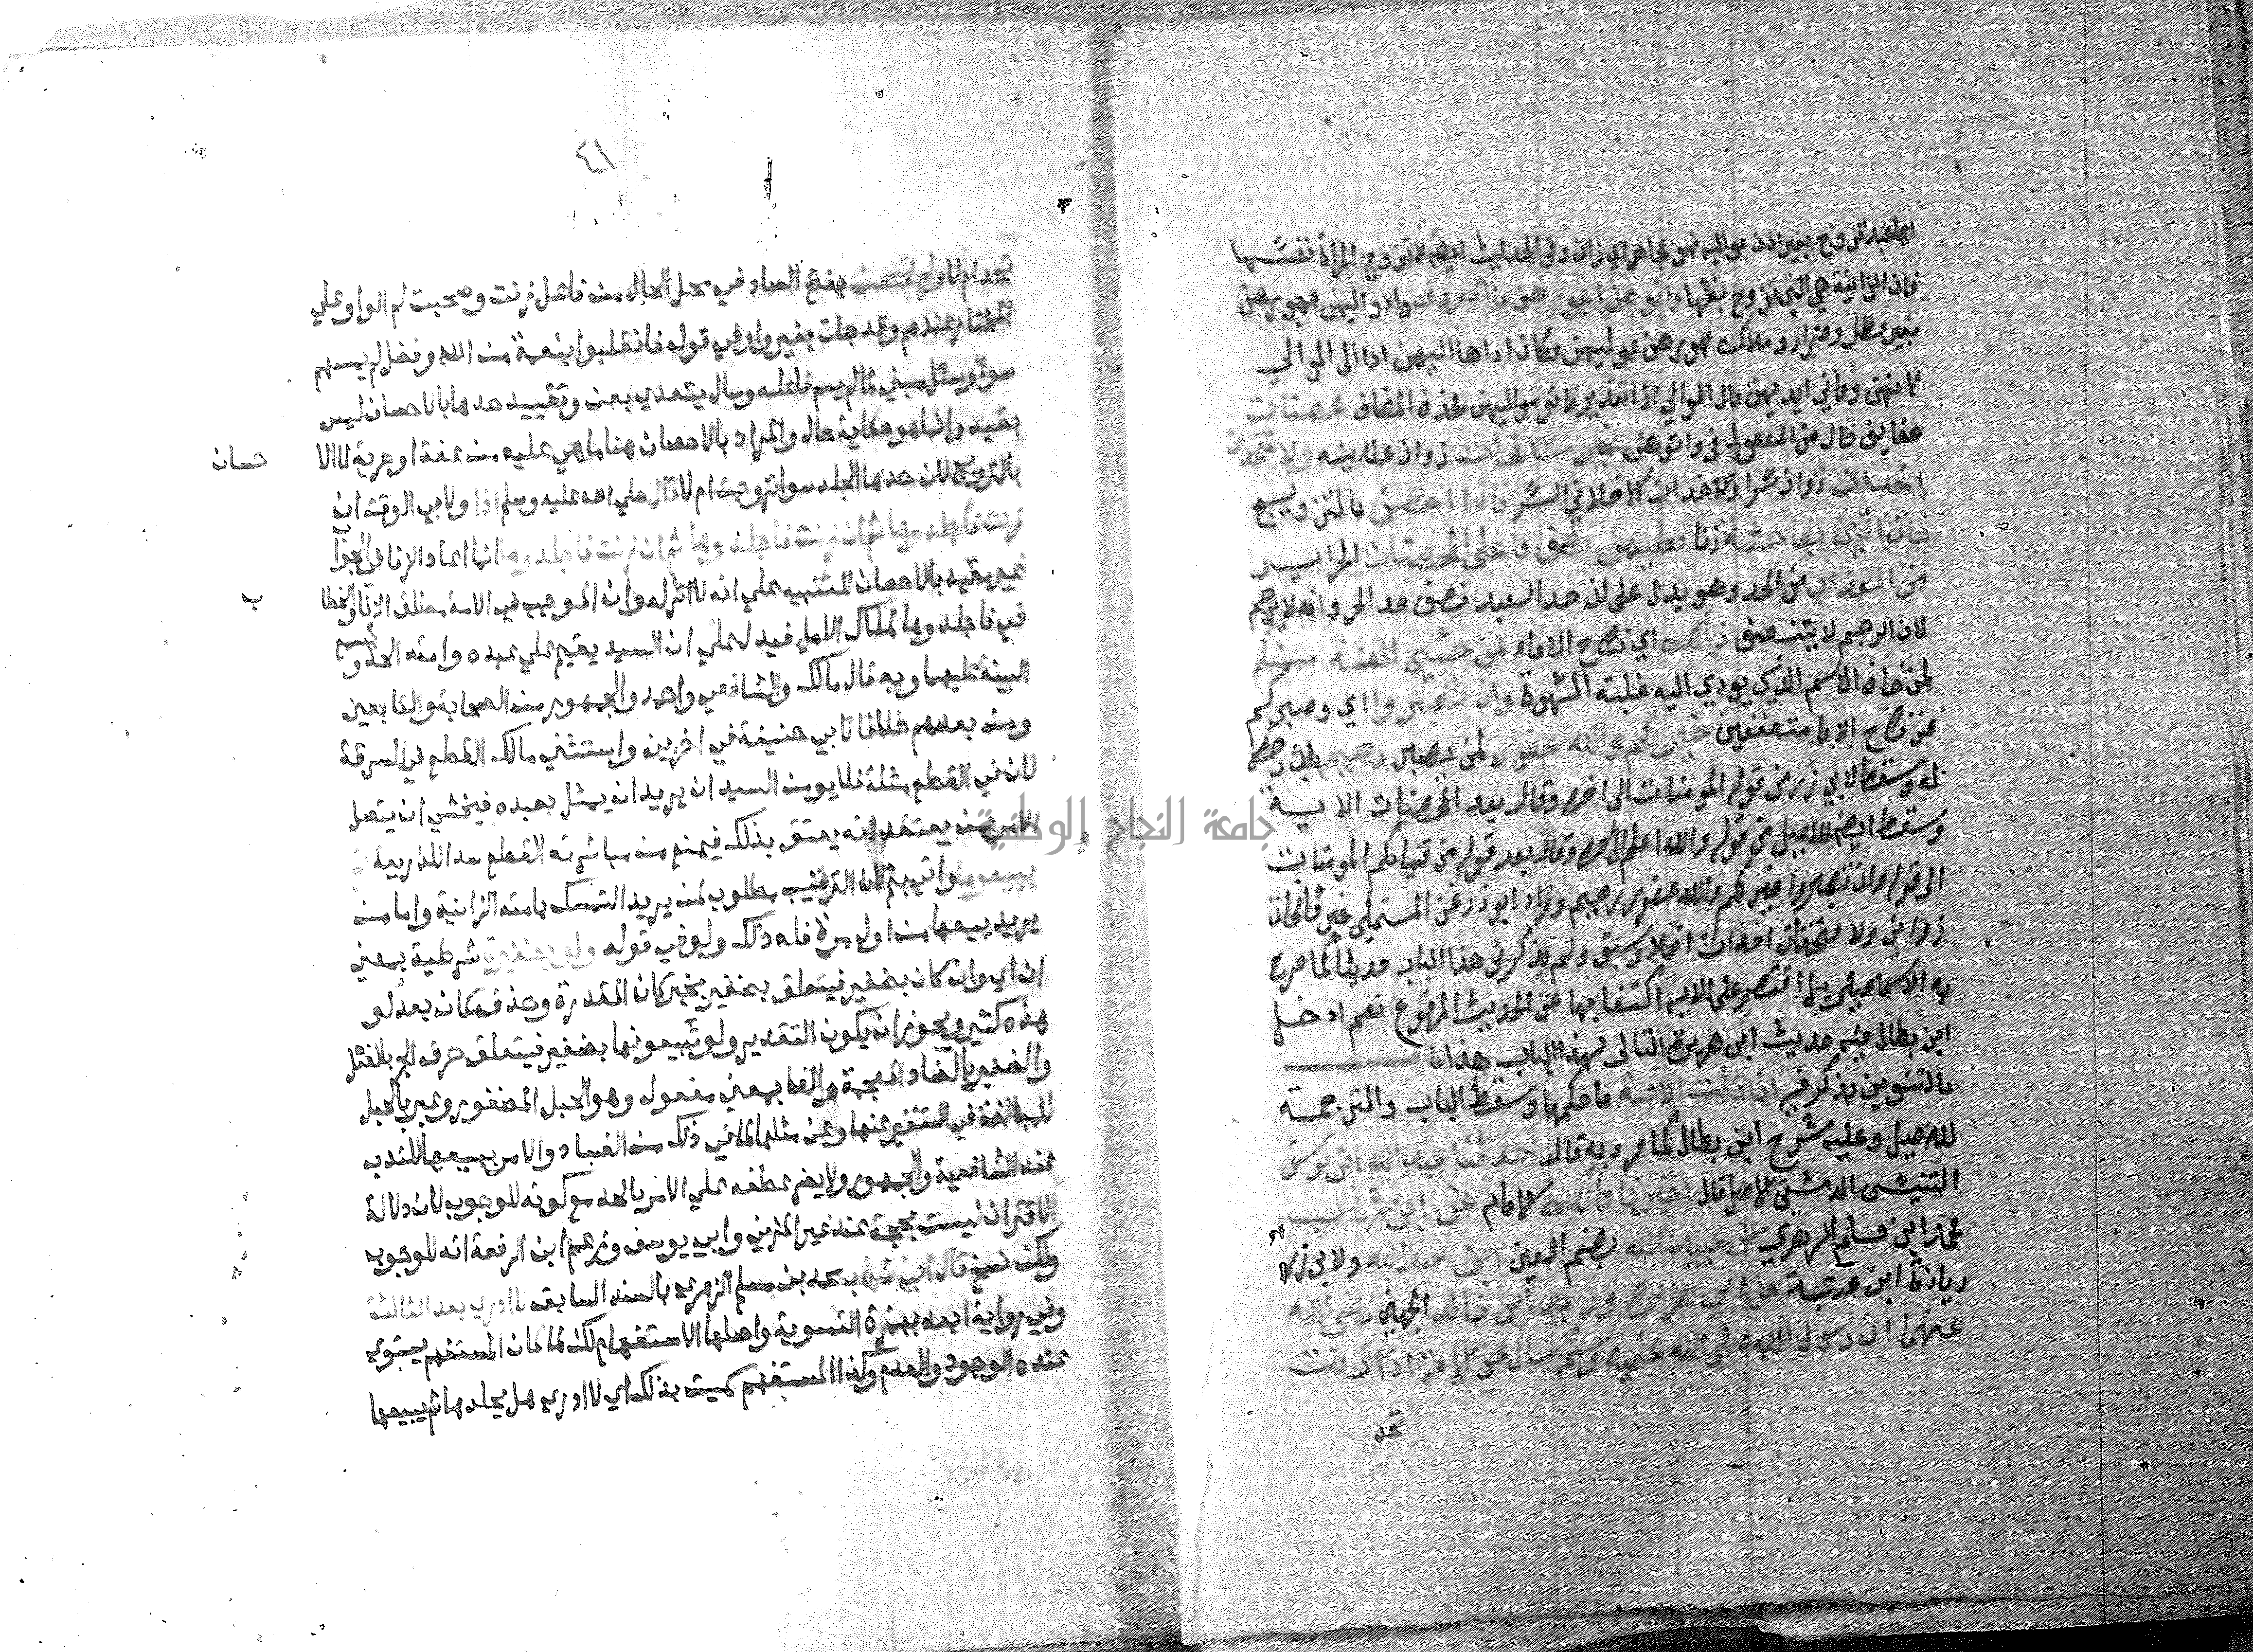 ايما عبد تزوج بغير اذن مواليه فهو عاهر اي زان وفي الحديث ايضا لا تزوج المراة نفسها
فان الزانية هي التي تزوج نفسها واتوهن اجورهن بالمعروف وادوا اليهن مهورهن
بغير مطل وضرار وملاك مهورهن مواليهن فكان اداها اليهن ادا الى الموالي
لانهن وما في ايديهن مال الموالي اذ التقدير فاتوا مواليهن فحذف المضاف محصنات
عفايف حال من المفعول في واتوهن غير مسافحات زوان علانية ولا متخذات
اخدان زوان سرا والاخدان الاخلا في السر فاذا احصن بالتزويج
فان اتين بفاحشة زنا فعليهن نصف ما على المحصنات الحراير
من العذاب من الحد وهو يدل على ان حد العبد نصف حد الحر وانه لا يرجم
لان الرجم لا يتنصف ذالك اي نكاح الاماء لمن خشي العنت منكم
لمن خاف الاثم الذي يودي اليه غلبة الشهوة وان تصبروا اي وصبركم
عن نكاح الاما متعففين خير لكم والله غفور لمن يصبر رحيم بان رخص
له وسقط لابي ذر من قوله المومنات الى اخره وقال بعد المحصنات الاية
وسقط ايضا للاصيلي من قوله والله اعلم الى اخره وقال بعد قوله من فتياتكم المومنات
الى قوله وان تصبروا خير لكم والله غفور رحيم وزاد ابو ذر عن المستملي غير مسافحات
زواني ولا متخذات اخدان اخلا وسبق ولم يذكر في هذا الباب حديثا كما صرح
به الاسماعيلي بل اقتصر على الاية اكتفا بها عن الحديث المرفوع نعم ادخل
ابن بطال فيه حديث ابي هريرة التالي لهذا الباب هذا باب
بالتنوين يذكر فيه اذا زنت الامة ما حكمها وسقط الباب والترجمة
للاصيلي وعليه شرح ابن بطال كما مر وبه قال حدثنا عبد الله ابن يوسف
التنيسي الدمشقي الاصل قال اخبرنا مالك الامام عن ابن شهاب
محمد ابن مسلم الزهري عن عبيد الله بضم العين ابن عبد الله ولابي ذر
زيادة ابن عتبة عن ابي هريرة وزيد ابن خالد الجهني رضي الله
عنهما ان رسول الله صلى الله عليه وسلم سال عن الامة اذا زنت
تحد
٤١
تحد ام لا ولم تحصن بفتح الصاد في محل الحال من فاعل زنت وصحبت لم الواو على
المختار عندهم وقد جات بغير واو في قوله فانقلبوا بنعمة من الله وفضل لم يمسسهم
سوؤ وسئل مبني لما لم يسم فاعله وسال يتعدي بعن وتقييد حدها بالاحصان ليس
بقيد وانما هو حكاية حال والمراد بالاحصان هنا ما هي عليه من عفة او حرية لا الا
حصان
بالتزويج لان حدها الجلد سوا تزوجت ام لا قال صلي الله عليه وسلم اذا ولابي الوقت ان
زنت فاجلدوها ثم ان زنت فاجلدوها ثم ان زنت فاجلدوها انما اعاد الزنا في الجواب
غير مقيد بالاحصان للتنبيه علي انه لا اثر له وان الموجب في الامة مطلق الزنا والخطا
ب
في فاجلدوها لملاك الاماء فيدل علي ان السيد يقيم علي عبده وامته الحد ويسمع
البينة عليهما وبه قال مالك والشافعي واحمد والجمهور من الصحابة والتابعين
ومن بعدهم خلافا لابي حنيفة في اخرين واستثني مالك القطع في السرقة
لان في القطع مثلة فلا يومن السيد ان يريد ان يمثل بعبده فيخشي ان يتصل
الامر بمن يعتقد انه يعتق بذلك فيمنع من مباشرته القطع سدا للذريعة
جامعة النجاح الوطنية
بيعوها واتي بثم لان الترتيب مطلوب لمن يريد التمسك بامته الزانية واما من
يريد بيعها من اول مرة فله ذلك ولو في قوله ولو بضفير شرطية بمعني
ان اي وان كان بضفير فيتعلق بضفير بخبر كان المقدرة وحذف كان بعد لو
هذه كثير ويجوز ان يكون التقدير ولو تبيعونها بضفير فيتعلق حرف الجر بالفعل
والضفير بالضاد المعجمة والفا بمعني مفعول وهو الحبل المضفور وعبر بالحبل
للمبالغة في التنفير عنها وعن مثلها لما في ذلك من الفساد والامر ببيعها للندب
عند الشافعية والجمهور ولا يضر عطفه علي الامر بالحد مع كونه للوجوب لان دلالة
الاقتران ليست بحجة عند غير المزني وابي يوسف وزعم ابن الرفعة انه للوجوب
ولكن نسخ قال ابن شهاب محمد بن مسلم الزهري بالسند السابق لا ادري بعد الثالثة
وفي رواية ابعد بهمزة التسوية واصلها الاستفهام لكن لما كان المستفهم يستوي
عنده الوجود والعدم وكذا المستفهم سميت بذلك اي لا ادري هل يجلدها ثم يبيعها